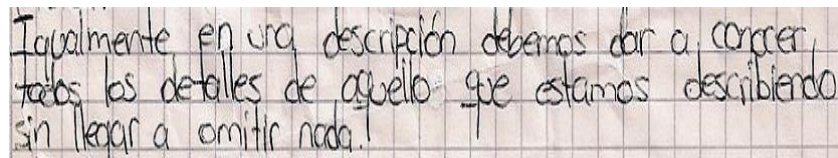 Igualmente en una descripción debemos dar a conocer,
todos los detalles de aquello que estamos describiendo
sin llegar a omitir nada.